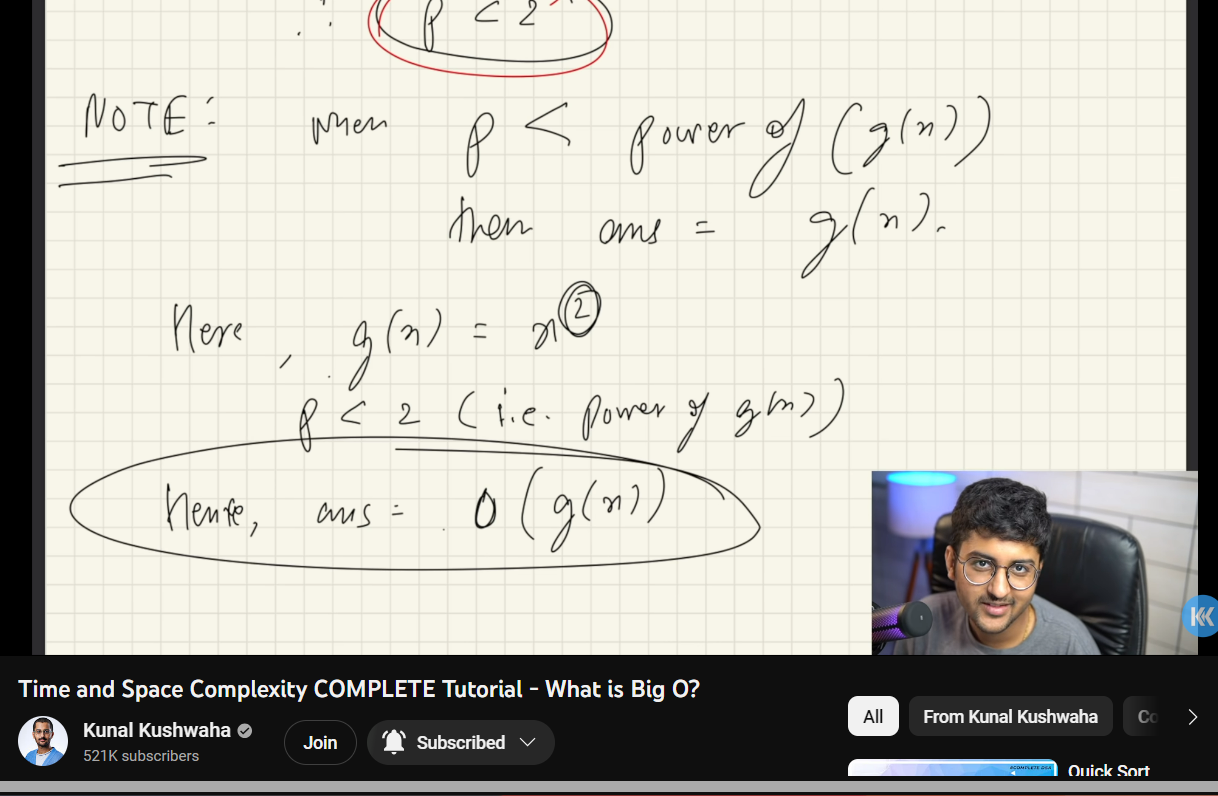 p < 2
NOTE: when p < power of (g(n))
then ans = g(n).
Here, g(n) = n²
p < 2 (i.e. power of g(n))
Hence, ans = O(g(n))
Time and Space Complexity COMPLETE Tutorial - What is Big O?
Kunal Kushwaha
521K subscribers
Join
Subscribed
All
From Kunal Kushwaha
Co
Quick Sort